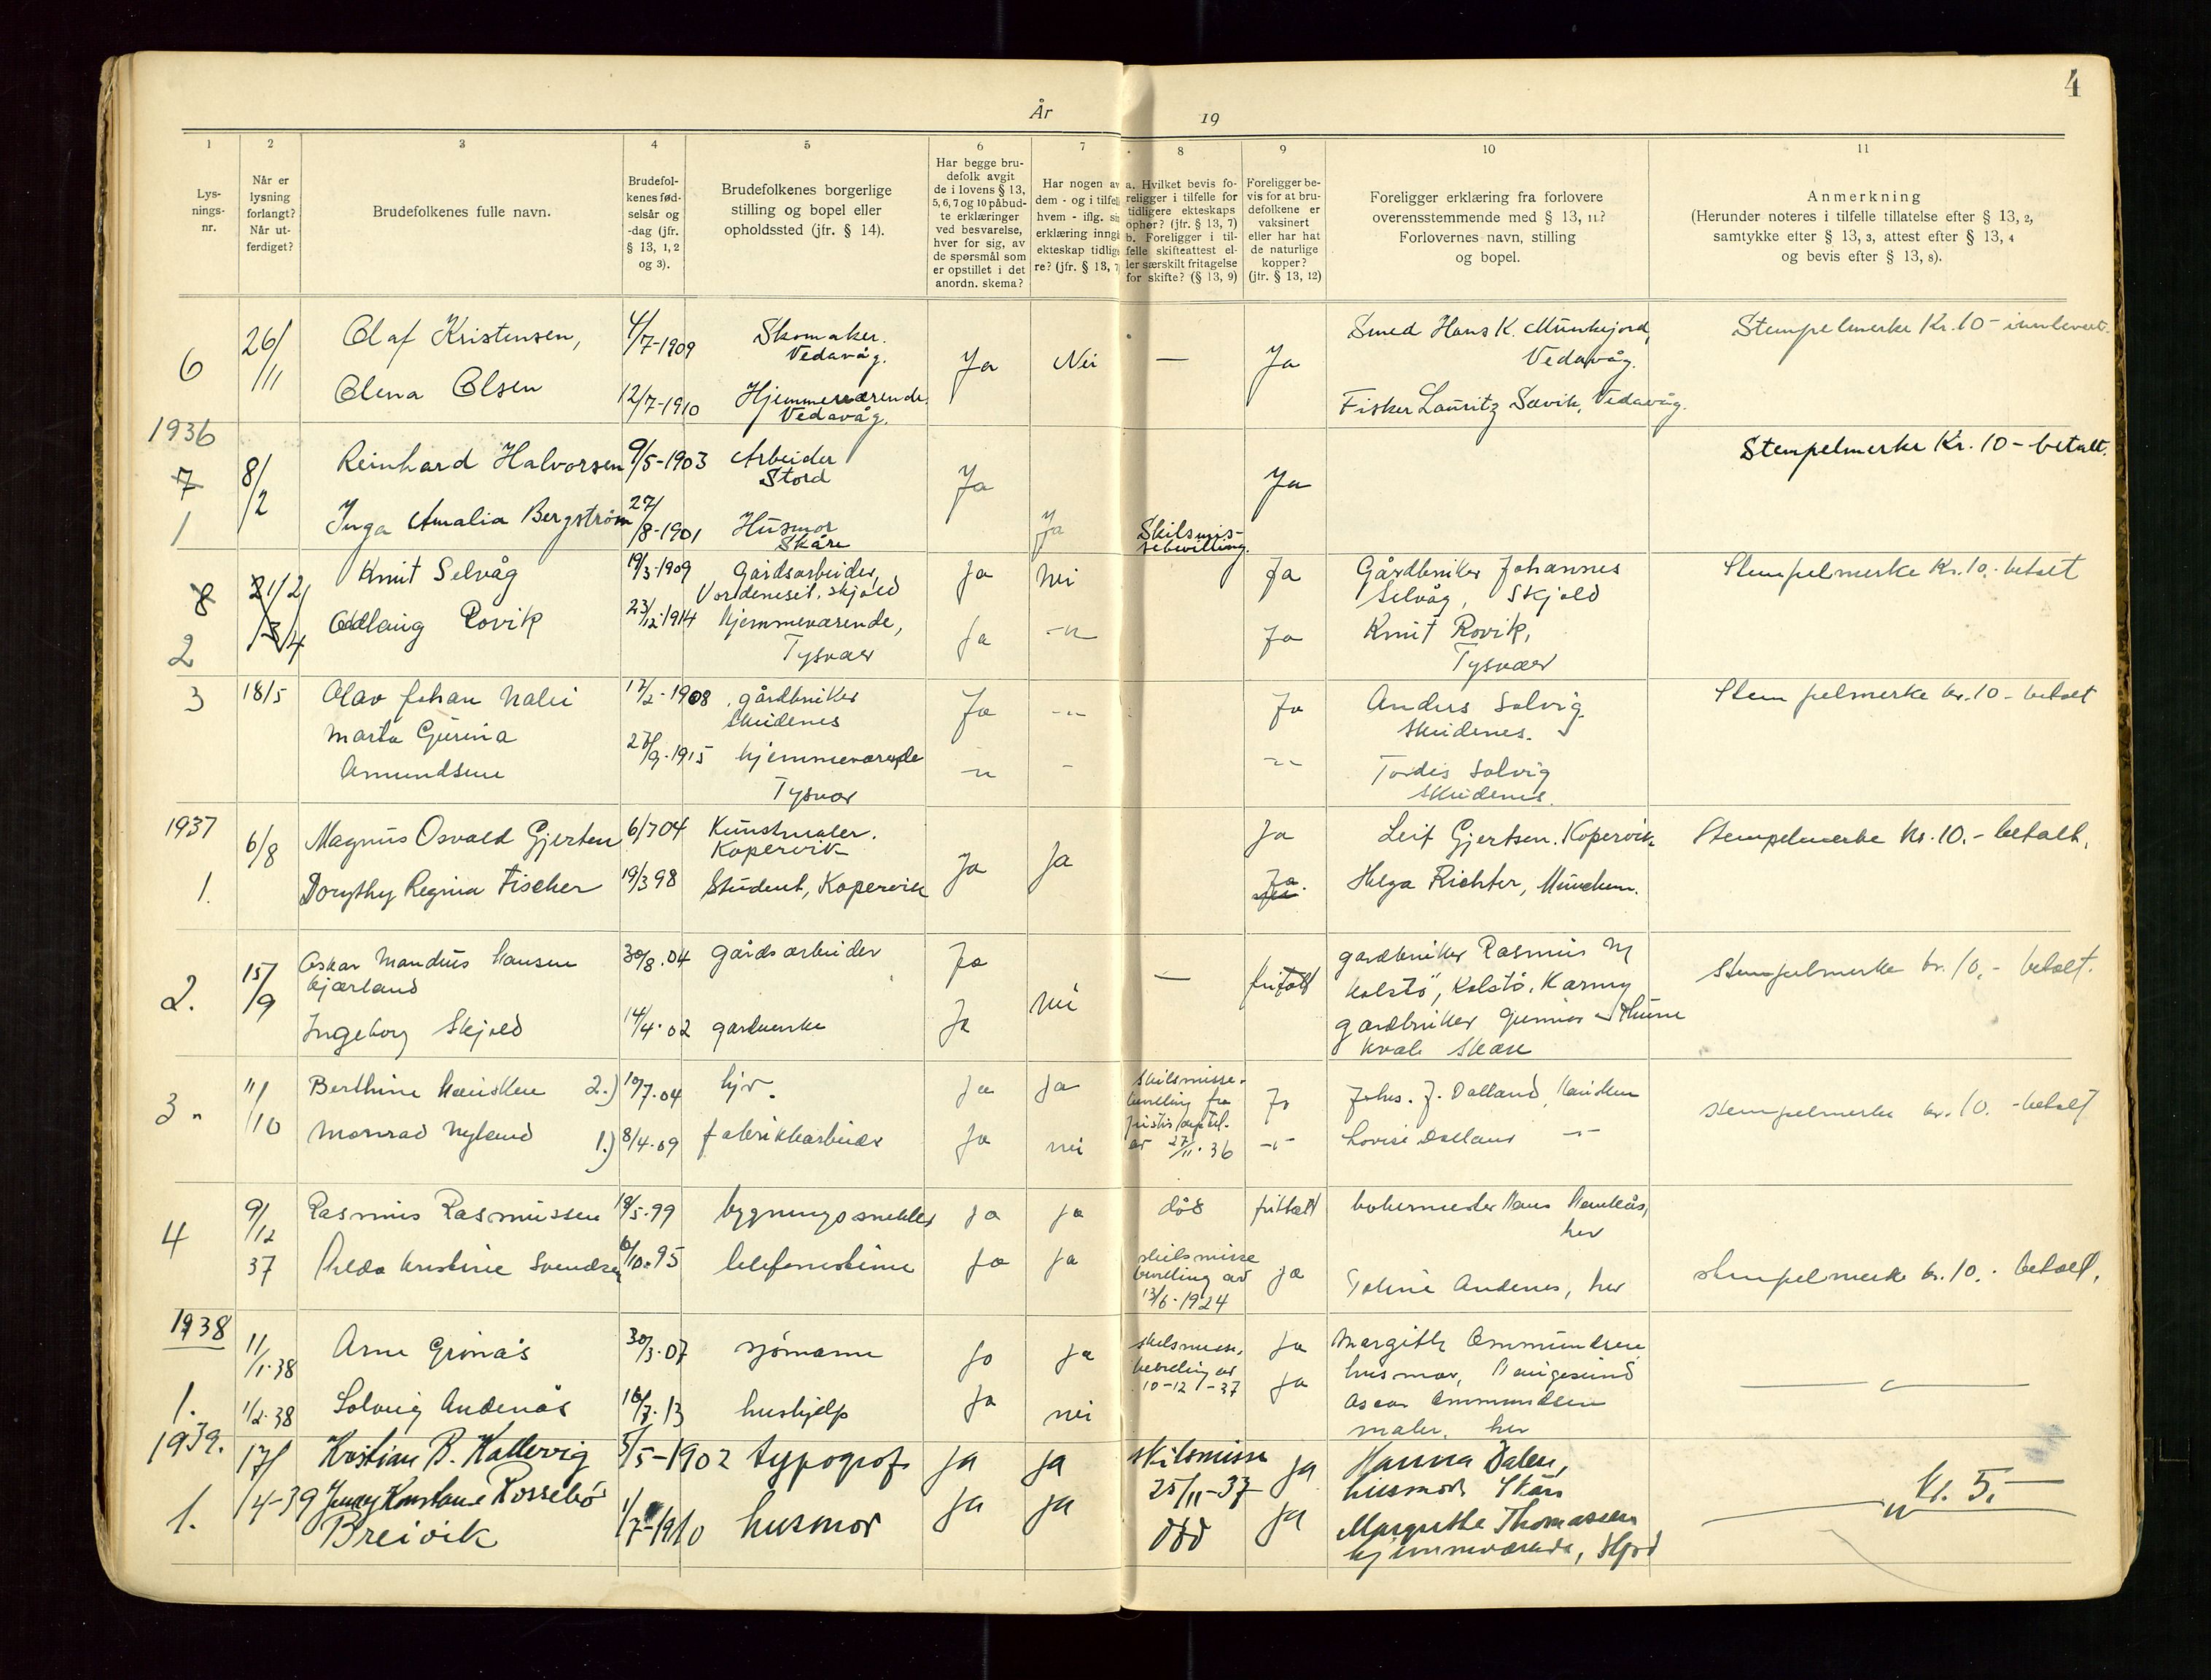 4
År 19
1 2 3 4 5 6 7 8 9 10 11
Lys-
nings-
nr.
Når er
lysning
forlangt?
Når ut-
ferdiget?
Brudefolkenes fulle navn.
Brudefol-
kenes fød-
selsår og
-dag (jfr.
§ 13, 1, 2
og 3).
Brudefolkenes borgerlige
stilling og bopel eller
opholdssted (jfr. § 14).
Har begge bru-
defolk avgit
de i lovens § 13,
5, 6, 7 og 10 påbud-
te erklæringer
ved besvarelse,
hver for sig, av
de spørsmål som
er opstillet i det
anordn. skema?
Har nogen av
dem - og i tilfelle
hvem - iflg. sin
erklæring inngå
ekteskap tidlige
re? (jfr. § 13, 7
a. Hvilket bevis fo-
religger i tilfelle for
tidligere ekteskaps
ophør? (jfr. § 13, 7)
b. Foreligger i til-
felle skifteattest el-
ler særskilt fritagelse
for skifte? (§ 13, 9)
Foreligger be-
vis for at bru-
defolkene er
vaksinert
eller har hat
de naturlige
kopper?
(jfr. § 13, 12)
Foreligger erklæring fra forlovere
overensstemmende med § 13, 11?
Forlovernes navn, stilling
og bopel.
Anmerkning
(Herunder noteres i tilfelle tillatelse efter § 13, 2,
samtykke efter § 13, 3, attest efter § 13, 4
og bevis efter § 13, 8).
6 26/11 Olaf Kristensen, 4/7-1909 Skomaker. Ja Nei — Ja Smed Hans K. Munkejord, Stempelmerke Kr. 10 - innlevert.
Vedavåg. Vedavåg.
Olena Olsen 12/7-1910 Hjemmeværende. Fisker Lauritz Sævik, Vedavåg.
Vedavåg.
1936
7 8/2 Reinhard Halvorsen 9/5-1903 Arbeider Ja Ja Stempelmerke Kr. 10 - betalt.
Stord
1 Inga Amalia Bergström 27/8-1901 Husmor Ja Skilsmis-
Skåre sebevilling.
8 21/2 Knut Selvåg 19/3-1909 Gårdsarbeider, Ja Nei Ja Gårdbruker Johannes Stempelmerke Kr. 10.- betalt
Skjold Selvåg, Skjold
2 /3/4 Odlaug Rovik 23/12-1914 hjemmeværende, Ja -"- Ja Knut Rovik,
Tysvær Tysvær
3 18/5 Olav Johan 17/2-1908 gårdbruker Ja -"- Ja Anders Solvig Stempelmerke kr. 10 - betalt
Skudenes Skudenes.
Marta Gurina 27/9-1915 hjemmeværende -"- - -"- Solvig
Amundsen Tysvær Skudenes.
1937
6/8 Magnus Osvald Gjertsen 6/7 04 Kunstmaler. Ja Ja Ja Leif Gjertsen. Kopervik Stempelmerke kr. 10.- betalt.
Kopervik
1. Dorythy Regina Fischer 19/3 98 Student, Kopervik Ja. Helga Richter, München.
2. 15/9 Oskar Mandius Hansen 30/8.04 gårdsarbeider Ja — fritatt gardbruker Rasmus M Stempelmerke kr. 10.- betalt.
Kjærland Kolstø, Kolstø, Karmøy
Ingeborg Skjold 14/4.02 Ja Nei gardbruker Gunnar
3. 11/10 Berthine 2.) 10/7.04 hjv. Ja Ja Skilsmisse- Ja Johs. J. Dalland, Stempelmerke kr. 10. - betalt
bevilling fra
Monrad Nyland 1.) 8/4.09 fabrikkarbeider Ja nei av 27/11.36 -"- Lovise Dalland -"-
4 9/12 Rasmus Rasmussen 19/5.99 bygningssnekker Ja Ja død fritatt Hans
her
37 Hilda Kristine Svendsen 6/10.95 telefonistinne Ja Ja skilsmisse Ja Andenes, her stempelmerke kr. 10.- betalt.
bevilling av
13/6-1924
1938
11/1.38 Arne Grønås 30/3.07 sjømann Ja Ja skilsmisse- Ja Margith Ommundsen
bevilling av husmor, Haugesund
1. 1/2.38 Solveig Andenås 16/7.13 hushjelp Ja nei 10-12-37 Ja Oscar Ommundsen
maler, her
1939. 17/4-39 Kristian B. Kallevig 5/5-1902 typograf Ja Ja skilsmisse Ja Hanna Dalen,
25/11-37 husmor Skåre
1. Jenny Konstanse Rossebø 1/7-1910 husmor Ja Ja død Ja Margrethe Thomassen kr. 5.—
Breivik hjemmeværende,